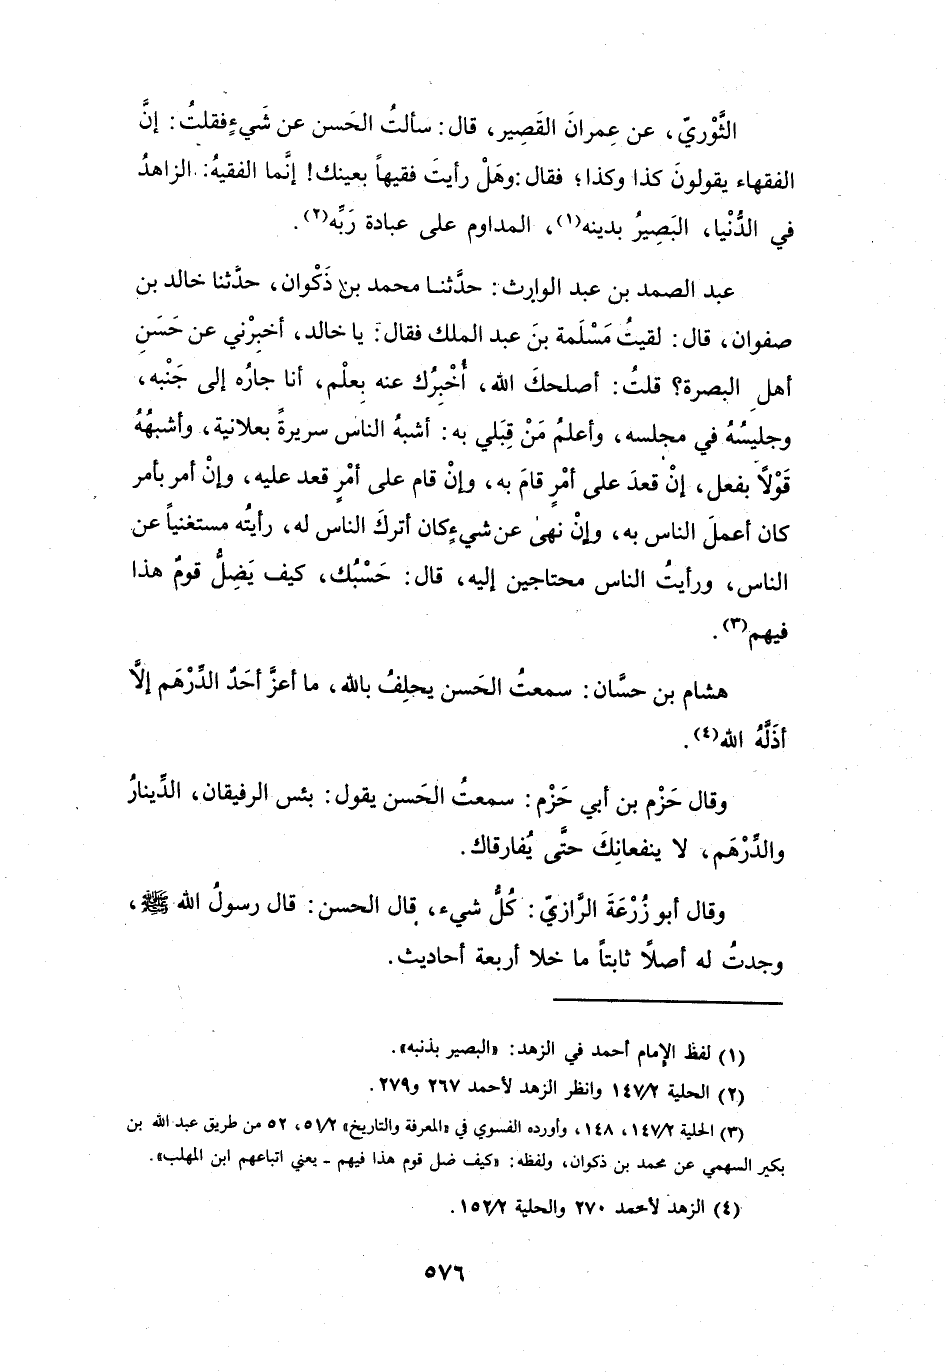 الثَّوْريّ، عن عِمرانَ القَصِير، قال: سألتُ الحَسن عن شَيءٍ فقلتُ: إنَّ
الفقهاء يقولونَ كذا وكذا؛ فقال: وهَلْ رأيتَ فقيهاً بعينك! إنَّما الفقيهُ: الزاهدُ
في الدُّنْيا، البَصِيرُ بدينه(١)، المداوم على عبادة رَبِّه(٢).
عبد الصمد بن عبد الوارث: حدَّثنا محمد بن ذَكْوان، حدَّثنا خالد بن
صفوان، قال: لقيتُ مَسْلَمة بنَ عبد الملك فقال: يا خالد، أخبِرْني عن حَسَنِ
أهلِ البصرة؟ قلتُ: أصلحكَ الله، أُخْبِرُك عنه بِعلْم، أنا جارُه إلى جَنْبه،
وجليسُهُ في مجلسه، وأعلمُ مَنْ قِبَلي به: أشبهُ الناس سريرةً بعلانية، وأشبهُهُ
قَوْلاً بفعل، إنْ قعدَ على أمْرٍ قامَ به، وإنْ قام على أمْرٍ قعد عليه، وإنْ أمر بأمر
كان أعملَ الناس به، وإنْ نهىٰ عن شيءٍ كان أتركَ الناس له، رأيتُه مستغنياً عن
الناس، ورأيتُ الناس محتاجين إليه، قال: حَسْبُك، كيف يَضِلُّ قومٌ هذا
فيهم(٣).
هشام بن حسَّان: سمعتُ الحَسن يحلِفُ بالله، ما أعزَّ أحَدٌ الدِّرْهَم إلَّا
أذَلَّهُ الله(٤).
وقال حَزْم بن أبي حَزْم: سمعتُ الحَسن يقول: بئس الرفيقان، الدِّينارُ
والدِّرْهَم، لا ينفعانِكَ حتَّى يُفارقاك.
وقال أبو زُرْعَةَ الرَّازيّ: كُلُّ شيء، قال الحسن: قال رسولُ الله ﷺ،
وجدتُ له أصلاً ثابتاً ما خلا أربعة أحاديث.
(١) لفظ الإمام أحمد في الزهد: «البصير بذنبه».
(٢) الحلية ١٤٧/٢ وانظر الزهد لأحمد ٢٦٧ و٢٧٩.
(٣) الحلية ١٤٧/٢، ١٤٨، وأورده الفسوي في «المعرفة والتاريخ» ٥١/٢، ٥٢ من طريق عبد الله بن
بكير السهمي عن محمد بن ذكوان، ولفظه: «كيف ضل قوم هذا فيهم ـ يعني اتباعهم ابن المهلب».
(٤) الزهد لأحمد ٢٧٠ والحلية ١٥٢/٢.
٥٧٦